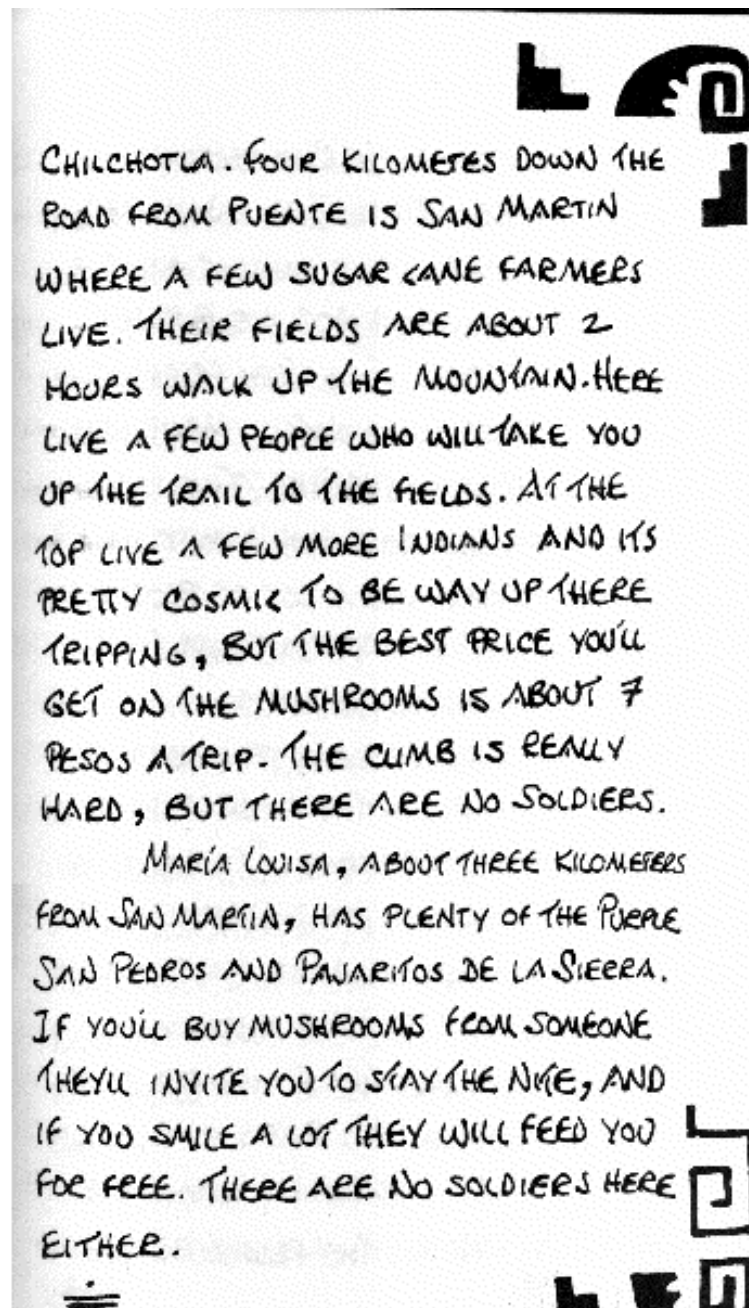 CHILCHOTLA. FOUR KILOMETES DOWN THE
ROAD FROM PUENTE IS SAN MARTIN
WHERE A FEW SUGAR CANE FARMERS
LIVE. THEIR FIELDS ARE ABOUT 2
HOURS WALK UP THE MOUNTAIN. HERE
LIVE A FEW PEOPLE WHO WILL TAKE YOU
UP THE TRAIL TO THE FIELDS. AT THE
TOP LIVE A FEW MORE INDIANS AND ITS
PRETTY COSMIC TO BE WAY UP THERE
TRIPPING, BUT THE BEST PRICE YOU'LL
GET ON THE MUSHROOMS IS ABOUT 7
PESOS A TRIP. THE CLIMB IS REALLY
HARD, BUT THERE ARE NO SOLDIERS.
MARÍA LOUISA, ABOUT THREE KILOMETERS
FROM SAN MARTIN, HAS PLENTY OF THE PURPLE
SAN PEDROS AND PAJARITOS DE LA SIERRA.
IF YOU'LL BUY MUSHROOMS FROM SOMEONE
THEYLL INVITE YOU TO STAY THE NITE, AND
IF YOU SMILE A LOT THEY WILL FEED YOU
FOR FREE. THERE ARE NO SOLDIERS HERE
EITHER.